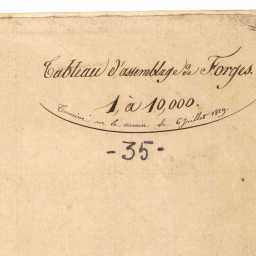 Tableau d'assemblage de Forges.
1 à 10,000.
Terminé sur le terrain le 6 juillet 1819
- 35 -